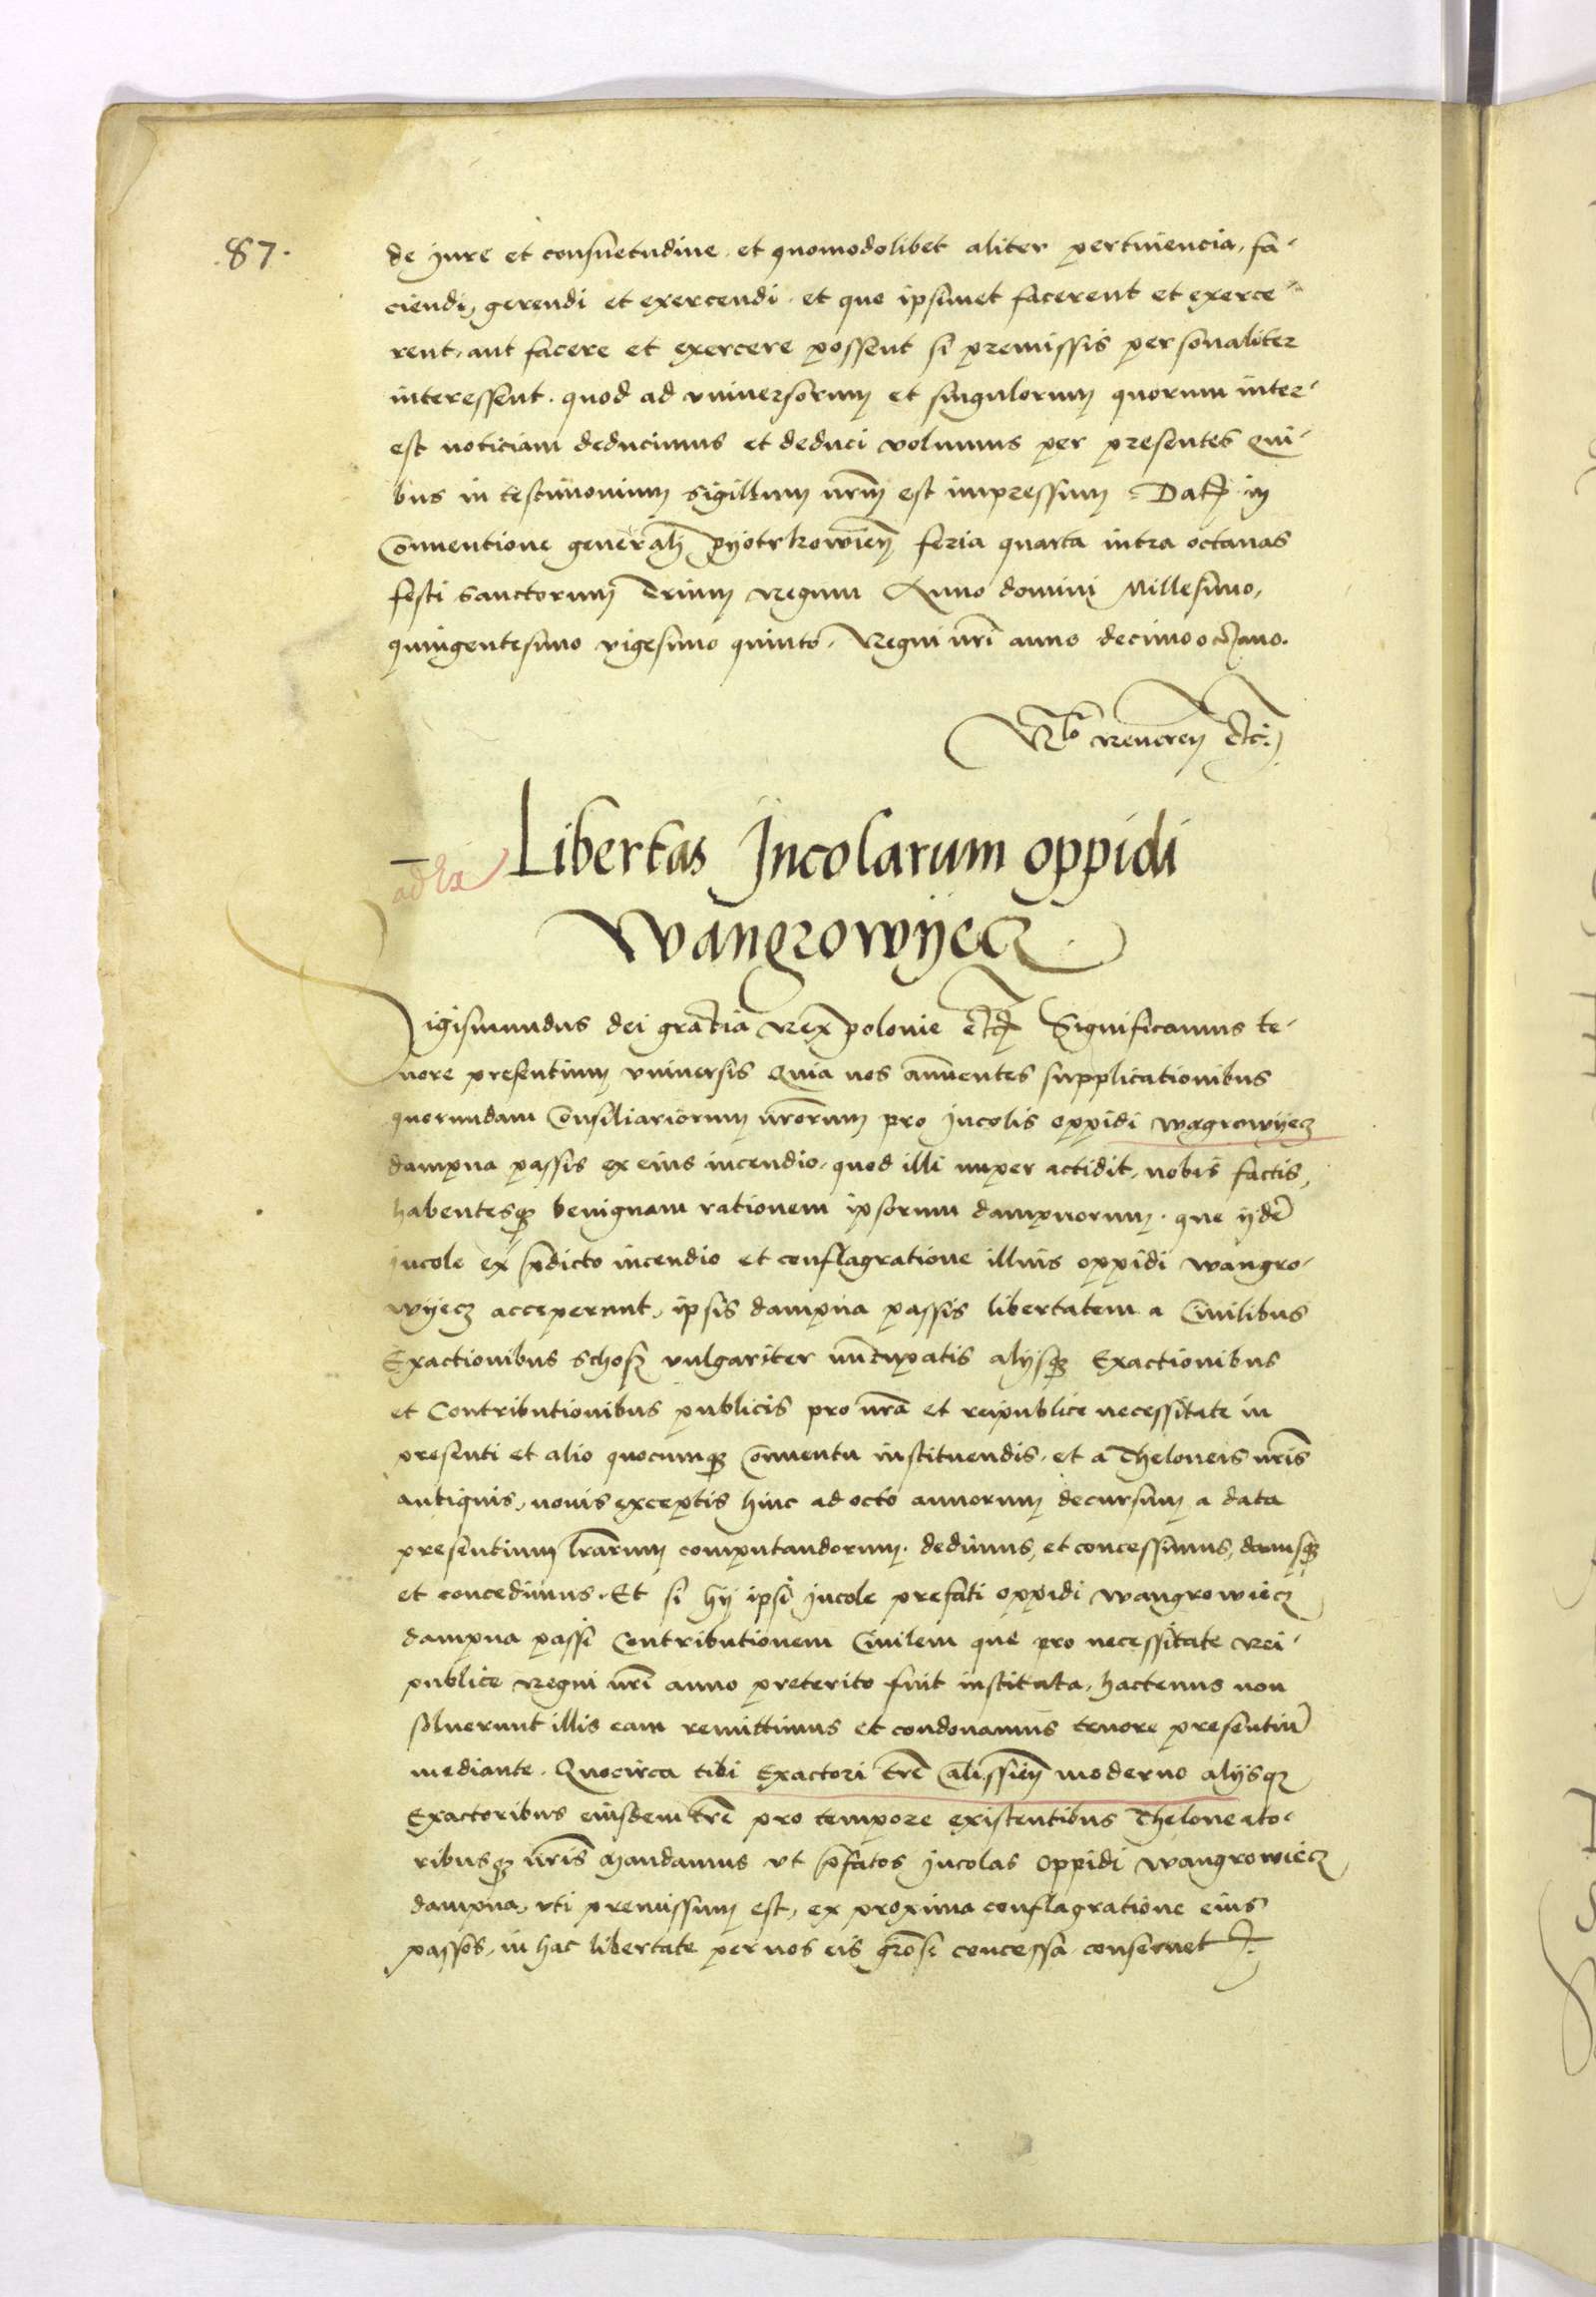 87.
de jure et consuetudine et quomodolibet aliter pertinencia, fa-
ciendi, gerendi et exercendi et que ipsimet facerent et exerce-
rent, aut facere et exercere possent si premissis personaliter
interessent. quod ad vniuersorum et singulorum quorum inter-
est noticiam deducimus et deduci volumus per presentes Qui-
bus in testimonium sigillum nrm̄ est impressum. Dat in
Conuentione generali pyotrkowien̄ feria quarta intra octauas
festi sanctorum Trium Regum Anno domini Millesimo,
quingentesimo vigesimo quinto. Regni nrī anno decimooctauo.
Rlō Reueren etc.
ad
Libertas Jncolarum oppidi
Wangrowyecz
Sigismundus dei gratia Rex polonie etc Significamus te-
nore presentium vniuersis Quia nos annuentes supplicationibus
quorundam Consiliariorum nrōrum pro jncolis oppidi wągrowyecz
dampna passis ex eius incendio, quod illi nuper actidit, nobis factis,
habentesqꝫ benignam rationem ipsorum dampnorum. que ijdē
jncole ex p̄dicto incendio et conflagratione illius oppidi wangro-
wyecz acceperunt, ipsis dampna passis libertatem a Ciuilibus
Exactionibus schosz vulgariter nūcupatis alijsqꝫ Exactionibus
et Contributionibus publicis pro nrā et reipublice necessitate in
presenti et alio quocumqꝫ Conuentu instituendis, et a Theloneis nrīs
antiquis, nouis exceptis hinc ad octo annorum decursum a data
presentium lrārum computandorum. dedimus, et concessimus, damusqꝫ
et concedimus. Et si hij ipsi jncole prefati oppidi wangrowiecz
dampna passi Contributionem Ciuilem que pro necessitate Rei-
publice Regni nrī anno preterito fuit instituta, hactenus non
soluerunt illis eam remittimus et condonamus tenore presentiū
mediante. Quocirca tibi Exactori trē Calissien̄ moderno alijsqꝫ
Exactoribus eiusdem trē pro tempore existentibus Theloneato-
ribusqꝫ nrīs Mandamus vt p̄fatos jncolas oppidi wangrowiecz
dampna, vti premissum est, ex proxima conflagratione eius
passos, in hac libertate per nos eis grōse concessa conseruet